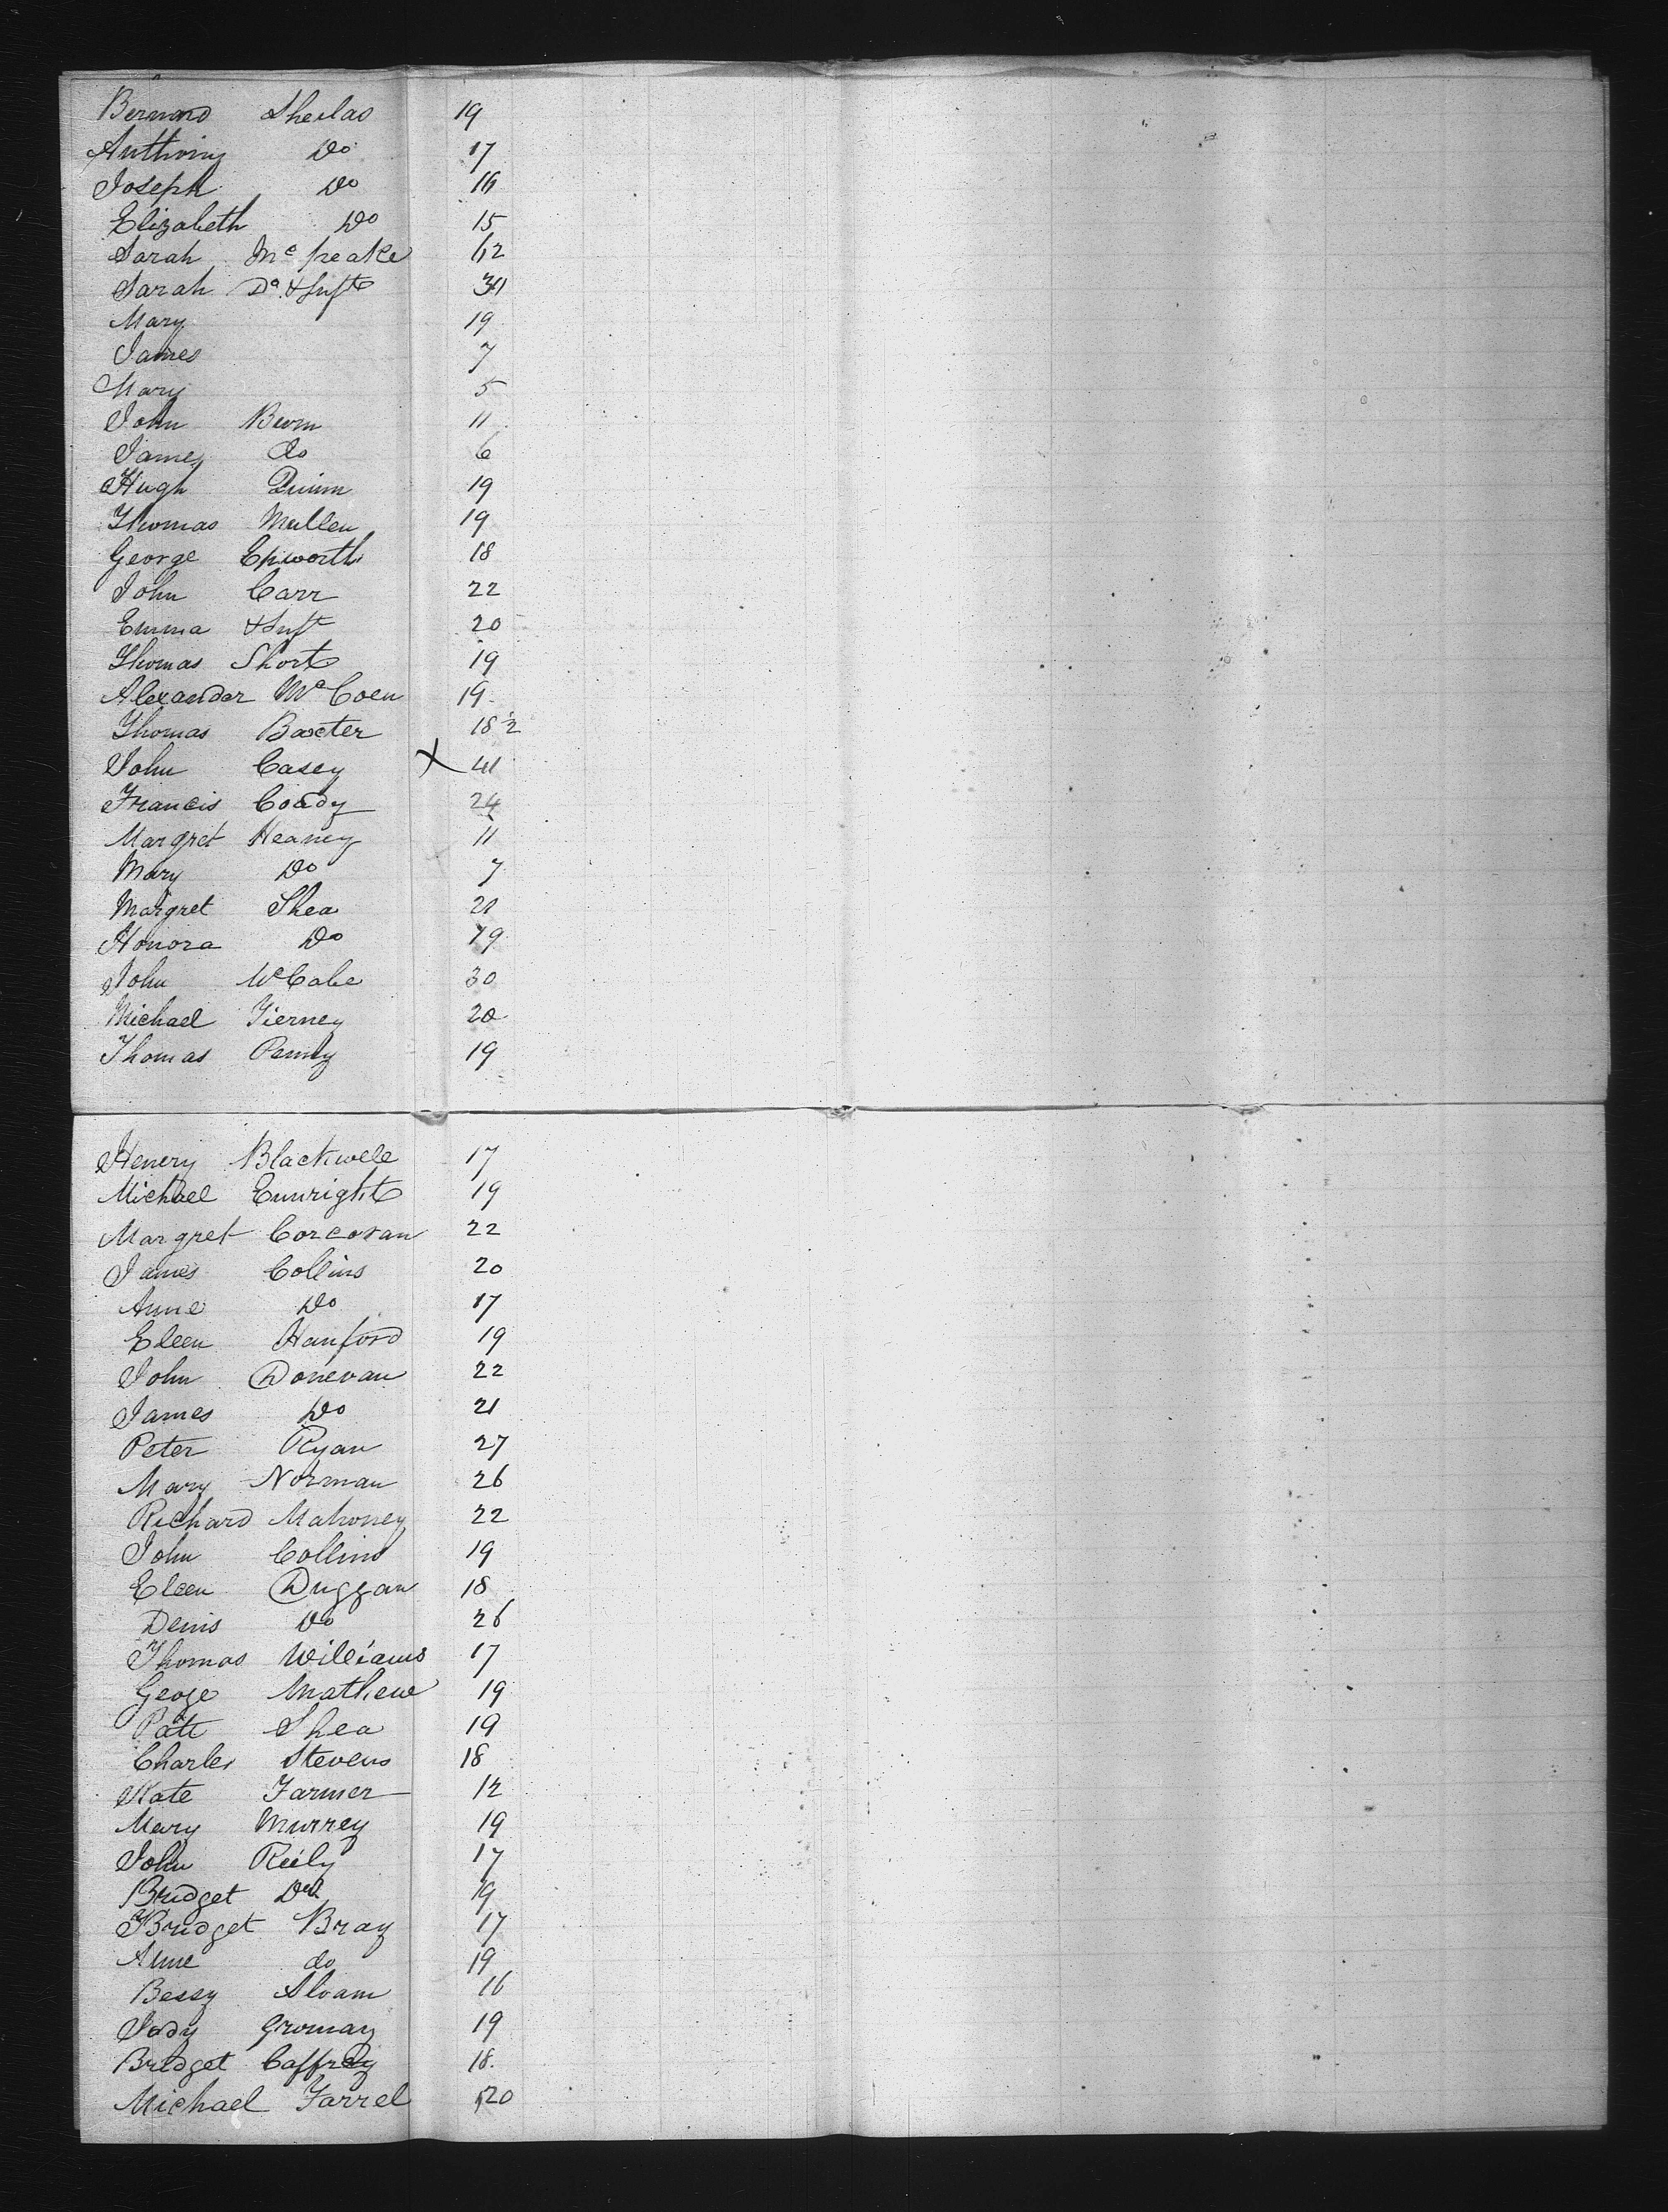 Bernard Sheilas 19
Anthony Do 17
Joseph Do 16
Elizabeth Do 15
Sarah Mc peake 62
Sarah Do & Inft 30
Mary 19
James 7
Mary 5
John Burn 11
James do 6
Hugh Quinn 19
Thomas Mullen 19
George Epworth 18
John Carr 22
Emma & Inft 20
Thomas Short 19
Alexander McCoen 19
Thomas Baxter 18½
John Casey X 41
Francis Coady 24
Margret Heaney 11
Mary Do 7
Margret Shea 21
Honora Do 19
John McCabe 30
Michael Tierney 20
Thomas Penny 19
Henery Blackwell 17
Michael Eunright 19
Margret Corcoran 22
James Collins 20
Anne Do 17
Eleen Hanford 19
John Donevan 22
James Do 21
Peter Ryan 27
Mary Norman 26
Richard Mahoney 22
John Collins 19
Eleen Duggan 18
Denis Do 26
Thomas Williams 17
Geoge Mathew 19
Patt Shea 19
Charles Stevens 18
Kate Farmer 12
Mary Murrey 19
John Reily 17
Bridget Do 19
Bridget Bray 17
Anne do 19
Bessy Sloam 16
Jody Gromay 19
Bredget Caffrey 18
Michael Farrel 20